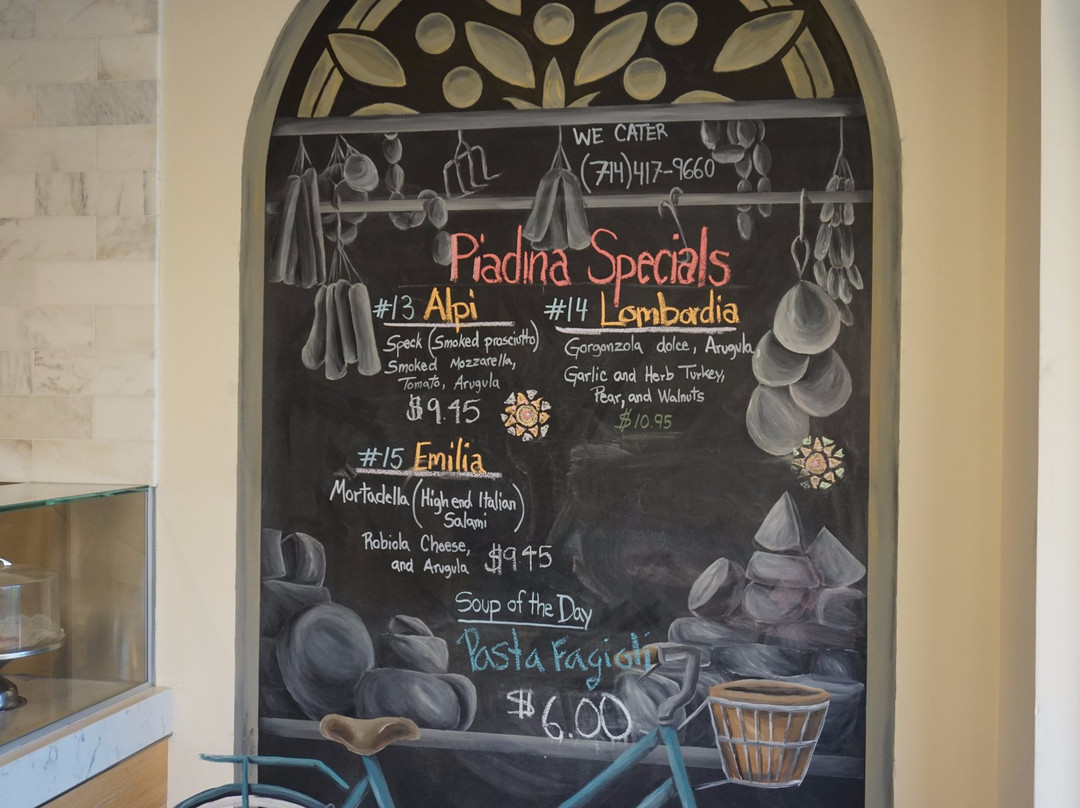 WE CATER
(714)417-9660
Piadina Specials
#13 Alpi
Speck (Smoked prosciutto)
Smoked Mozzarella,
Tomato, Arugula
$9.45
#14 Lombardia
Gorgonzola dolce, Arugula,
Garlic and Herb Turkey,
Pear, and Walnuts
$10.95
#15 Emilia
Mortadella (High end Italian
Salami)
Robiola Cheese,
and Arugula $9.45
Soup of the Day
Pasta Fagioli
$6.00